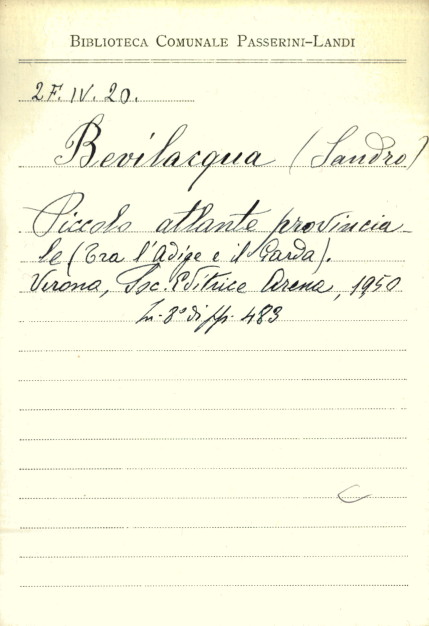 BIBLIOTECA COMUNALE PASSERINI-LANDI
2F. IV. 20.
Bevilacqua (Sandro)
Piccolo atlante provincia-
le (Tra l'Adige e il Garda).
Verona, Soc. Editrice Arena, 1950
In-8° di pp. 483